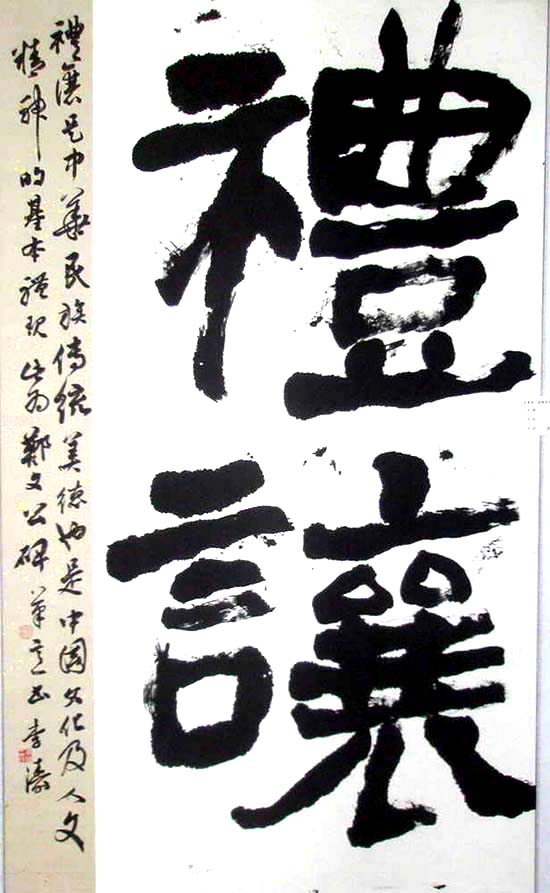 禮讓
禮讓是中華民族傳統美德也是中國文化及人文
精神的基本體現此為鄭文公碑筆意書李濤